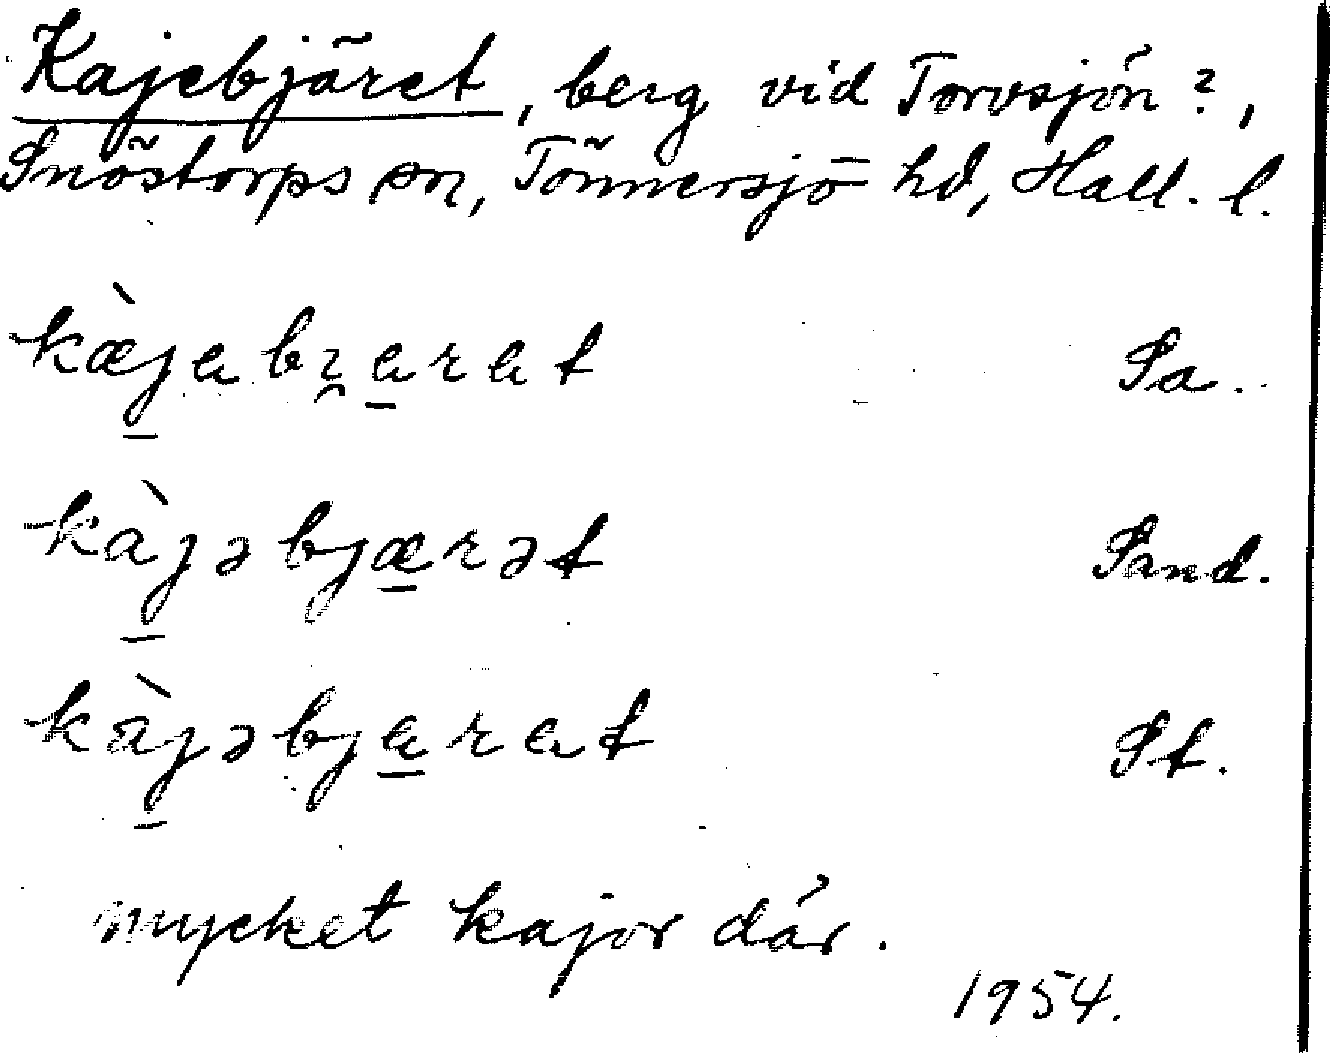 Kajebjäret, berg vid Torvsjön?,
Snöstorps sn, Tönnersjö hd, Hall. l.
kæ̀j̱ɐbi̯ɐ̱rɐt Sa.
kàj̱əbjæ̱rət Sand.
kàj̱əbjɐ̱rɐt St.
mycket kajor där.
1954.